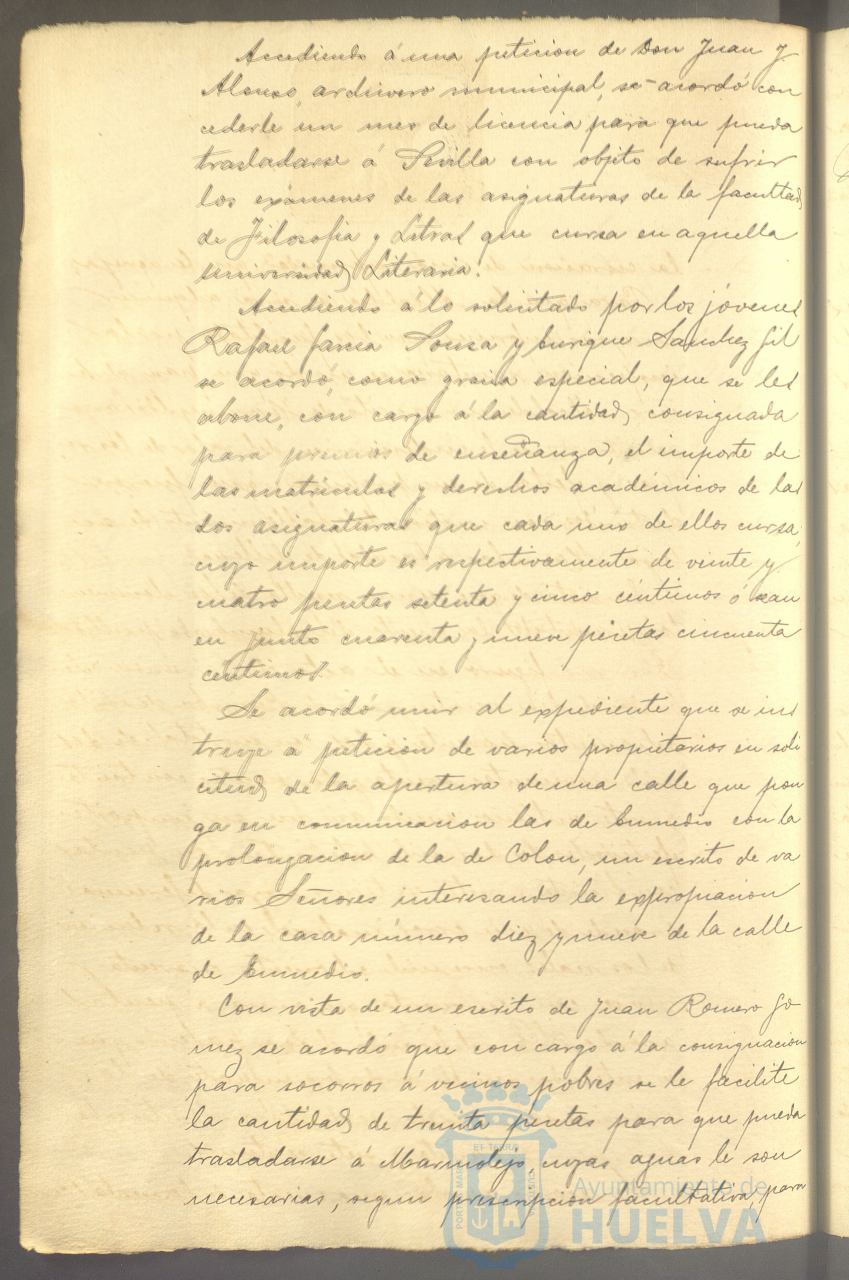 Accediendo á una peticion de Don Juan y
Alonso, archivero municipal, se acordó con
cederle un mes de licencia para que pueda
trasladarse á Sevilla con objeto de sufrir
los exámenes de las asignaturas de la facultad
de Filosofia y Letras que cursa en aquella
Universidad Literaria.
Accediendo á lo solicitado por los jóvenes
Rafael Garcia Sousa y Enrique Sanchez Gil
se acordó, como gracia especial, que se les
abone, con cargo á la cantidad consignada
para premios de enseñanza, el importe de
las matriculas y derechos académicos de las
dos asignaturas que cada uno de ellos cursa,
cuyo importe es respectivamente de veinte y
cuatro pesetas setenta y cinco céntimos ó sean
en junto cuarenta y nueve pesetas cincuenta
centimos.
Se acordó unir al expediente que se ins
truye a peticion de varios propietarios en soli
citud de la apertura de una calle que pon
ga en comunicacion las de Enmedio con la
prolongacion de la de Colon, un escrito de va
rios Señores interesando la expropiacion
de la casa número diez y nueve de la calle
de Enmedio.
Con vista de un escrito de Juan Romero Go
mez se acordó que con cargo á la consignacion
para socorros á vecinos pobres se le facilite
la cantidad de treinta pesetas para que pueda
trasladarse á Marmolejo, cuyas aguas le son
necesarias, segun prescripcion facultativa, para
Ayuntamiento de
HUELVA